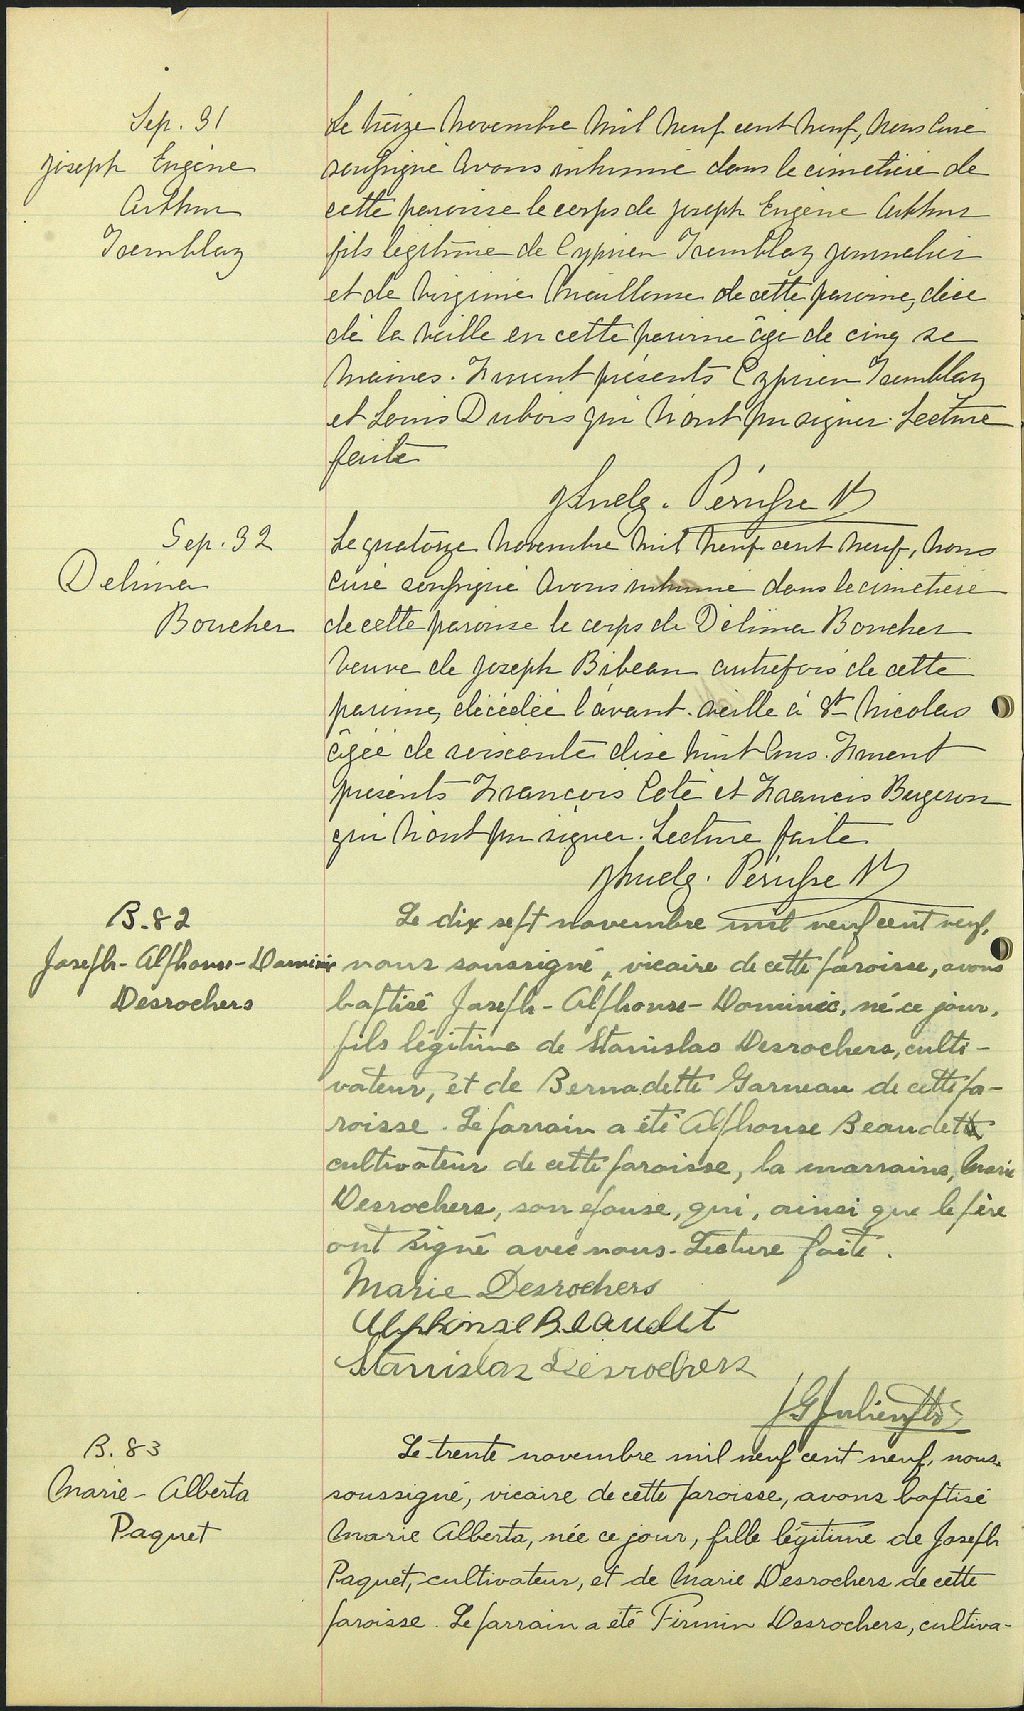 Sep. 31
Joseph Eugène
Arthur
Tremblay
Le treize Novembre mil neuf cent neuf, nous curé
soussigné avons inhumé dans le cimetière de
cette paroisse le corps de Joseph Eugène Arthur
fils légitime de Cyprien Tremblay journalier
et de Virginie de cette paroisse, décé
dé la veille en cette paroisse âgé de cinq se
maines. Furent présents Cyprien Tremblay
et Louis Dubois qui n'ont pu signer. Lecture
faite
Pérusse
Sep. 32
Delima
Boucher
Le quatorze Novembre mil neuf cent neuf, nous
curé soussigné avons inhumé dans le cimetière
de cette paroisse le corps de Délima Boucher
veuve de Joseph Bibeau autrefois de cette
paroisse, décédée l'avant-veille à St Nicolas
âgée de soixante dix huit ans. Furent
présents François Coté et Francis Bergeron
qui n'ont pu signer. Lecture faite
Pérusse
B. 82
Joseph-Alphonse-Dominic
Desrochers
Le dix sept novembre mil neuf cent neuf,
nous soussigné, vicaire de cette paroisse, avons
baptisé Joseph-Alphonse-Dominic, né ce jour,
fils légitime de Stanislas Desrochers, culti-
vateur, et de Bernadette Garneau de cette pa-
roisse. Le parrain a été Alphonse Beaudet
cultivateur de cette paroisse, la marraine, Marie
Desrochers, son épouse, qui, ainsi que le père
ont signé avec nous. Lecture faite.
Marie Desrochers
Alphonse Beaudet
Stanislas Desrochers
J G Julien Ptre
B. 83
Marie-Alberta
Paquet
Le trente novembre mil neuf cent neuf, nous
soussigné, vicaire de cette paroisse, avons baptisé
Marie Alberta, née ce jour, fille légitime de Joseph
Paquet, cultivateur, et de Marie Desrochers de cette
paroisse. Le parrain a été Firmin Desrochers, cultiva-